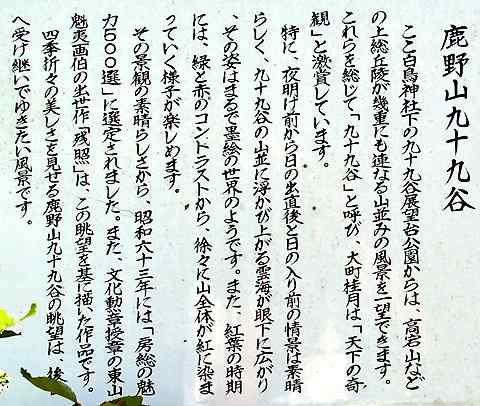 鹿野山九十九谷
ここ白鳥神社下の九十九谷展望台公園からは、高宕山など
の上総丘陵が幾重にも連なる山並みの風景を一望できます。
これらを総じて「九十九谷」と呼び、大町桂月は「天下の奇
観」と激賞しています。
特に、夜明け前から日の出直後と日の入り前の情景は素晴
らしく、九十九谷の山並に浮かび上がる雲海が眼下に広がり
、その姿はまるで墨絵の世界のようです。また、紅葉の時期
には、緑と赤のコントラストから、徐々に山全体が紅に染ま
っていく様子が楽しめます。
その景観の素晴らしさから、昭和六十三年には「房総の魅
力500選」に選定されました。また、文化勲章授章の東山
魁夷画伯の出世作「残照」は、この眺望を基に描いた作品です。
四季折々の美しさを見せる鹿野山九十九谷の眺望は、後
へ受け継いでゆきたい風景です。